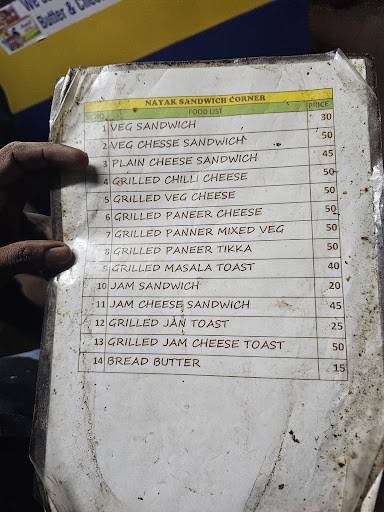 We
Butter & Chee
NAYAK SANDWICH CORNER
FOOD LIST PRICE
1 VEG SANDWICH 30
2 VEG CHESSE SANDWICH 50
3 PLAIN CHEESE SANDWICH 45
4 GRILLED CHILLI CHEESE 50
5 GRILLED VEG CHEESE 50
6 GRILLED PANEER CHEESE 50
7 GRILLED PANNER MIXED VEG 50
8 GRILLED PANEER TIKKA 50
9 GRILLED MASALA TOAST 40
10 JAM SANDWICH 20
11 JAM CHEESE SANDWICH 45
12 GRILLED JAN TOAST 25
13 GRILLED JAM CHEESE TOAST 50
14 BREAD BUTTER 15